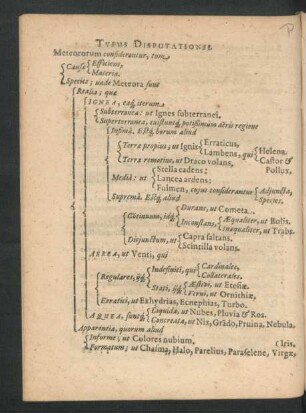 P
TYPUS DISPUTATIONIS.
Meteororum considerantur, tum
Causæ
Efficiens,
Materia.
Species; unde Meteora sunt
Realia; quæ
IGNEA, eaq́; iterum
Subterranea: ut Ignes subterranei.
Superterranea, existuntq́; potissimum aëris regione
Infimâ. Estq́; horum aliud
Terræ propius, ut Ignis
Erraticus,
Lambens, qui
Helena,
Castor &
Pollux.
Terræ remotius, ut Draco volans,
Mediâ: ut
Stella cadens;
Lancea ardens;
Fulmen, cujus considerantur
Adjuncta,
Species.
Supremâ. Estq́; aliud
Continuum, idq́;
Durans, ut Cometa..
Inconstans,
Æqualiter, ut Bolis.
Inæqualiter, ut Trabs.
Disjunctum, ut
Capra saltans.
Scintilla volans.
AEREA, ut Venti, qui
Regulares, iiq́;
Indefiniti, quæ
Cardinales,
Collaterales.
Stati, iiq́;
Æstivi, ut Etesiæ.
Verni, ut Ornithiæ,
Erratici, ut Exhydrias, Ecnephias, Turbo.
AQUEA, suntq́;
Liquida, ut Nubes, Pluvia & Ros.
Concreata, ut Nix, Grādo, Pruina, Nebula.
Apparentia, quorum aliud
Informe; ut Colores nubium,
Formatum; ut Chasma, Halo, Parelius, Paraselene, Virgæ,
Iris,